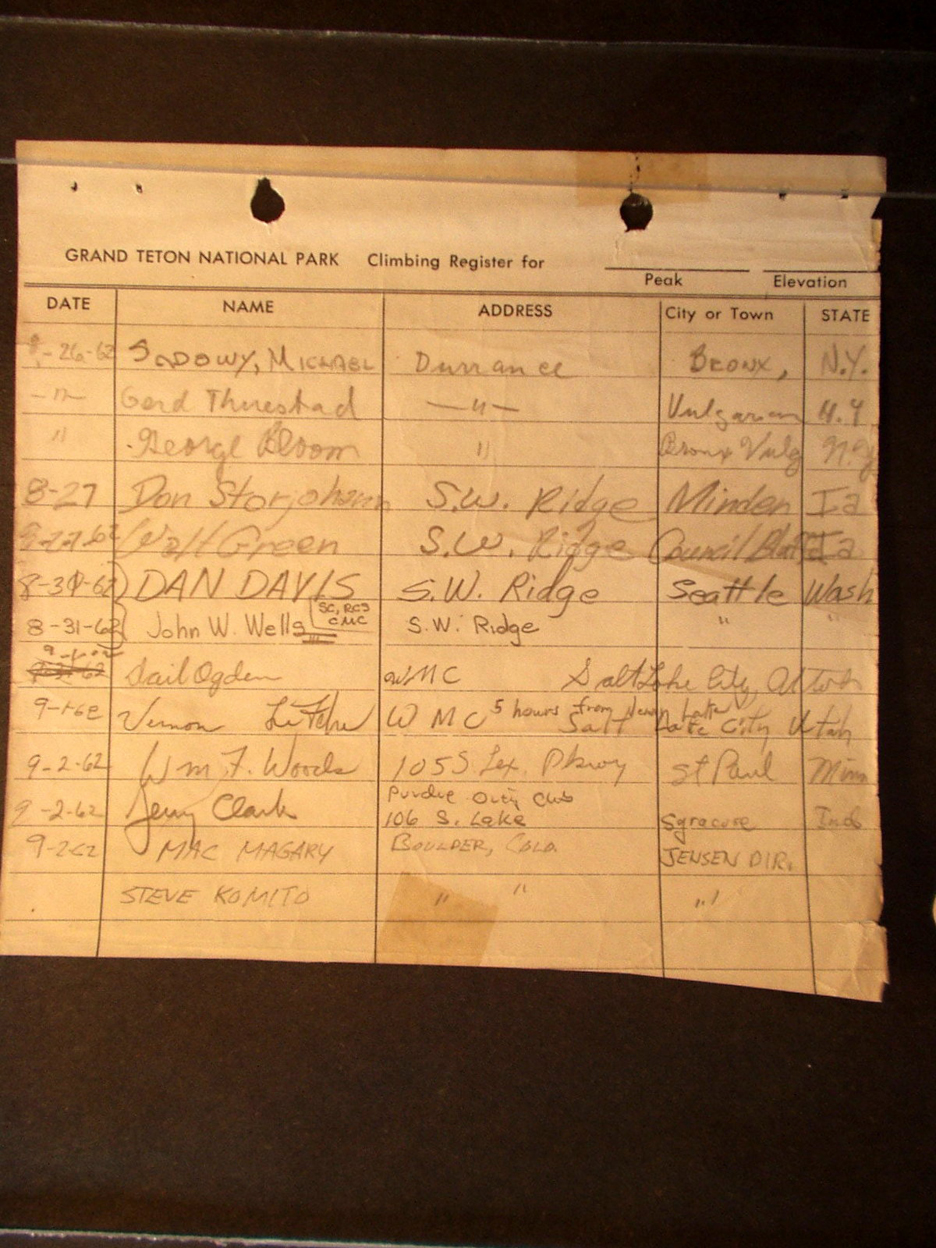 GRAND TETON NATIONAL PARK Climbing Register for
Peak Elevation
DATE NAME ADDRESS City or Town STATE
8-26-62 SADOWY, MICHAEL Durrance BRONX, N.Y.
-"- Gerd Thuestad -"- Vulgarian N.Y.
" George Bloom " Bronx Vulg N.Y.
8-27 Don Storjohann S.W. Ridge Minden Ia
8-27-62 Walt Green S.W. Ridge Council Bluffs Ia
8-31-62 DAN DAVIS S.W. Ridge Seattle Wash
8-31-62 John W. Wells SC, RCS S.W. Ridge " "
CMC
9-1-62
Gail Ogden WMC Salt Lake City, Utah
9-1-62 Vernon WMC 5 hours from Lake
Salt Lake City Utah
9-2-62 Wm. F. Woods 1055 Lex. Pkwy St Paul Minn
Purdue Outing Club
9-2-62 Jerry Clark 106 S. Lake Syracuse Ind
9-2-62 MAC MAGARY BOULDER, COLO. JENSEN DIR.
STEVE KOMITO " " "